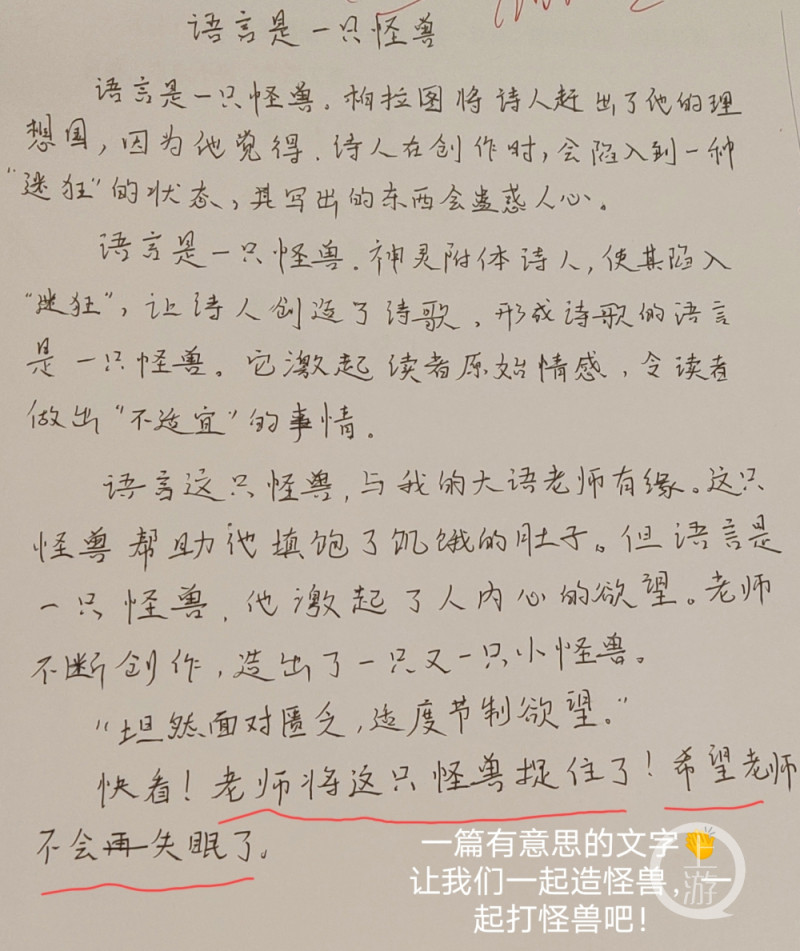 语言是一只怪兽
语言是一只怪兽。柏拉图将诗人赶出了他的理
想国，因为他觉得，诗人在创作时，会陷入到一种
“迷狂”的状态，其写出的东西会蛊惑人心。
语言是一只怪兽。神灵附体诗人，使其陷入
“迷狂”，让诗人创造了诗歌，形成诗歌的语言
是一只怪兽。它激起读者原始情感，令读者
做出“不适宜”的事情。
语言这只怪兽，与我的大语老师有缘。这只
怪兽帮助他填饱了饥饿的肚子。但语言是
一只怪兽，他激起了人内心的欲望。老师
不断创作，造出了一只又一只小怪兽。
“坦然面对匮乏，适度节制欲望。”
快看！老师将这只怪兽捉住了！希望老师
不会再失眠了。
一篇有意思的文字👏
让我们一起造怪兽，一
起打怪兽吧！
上游